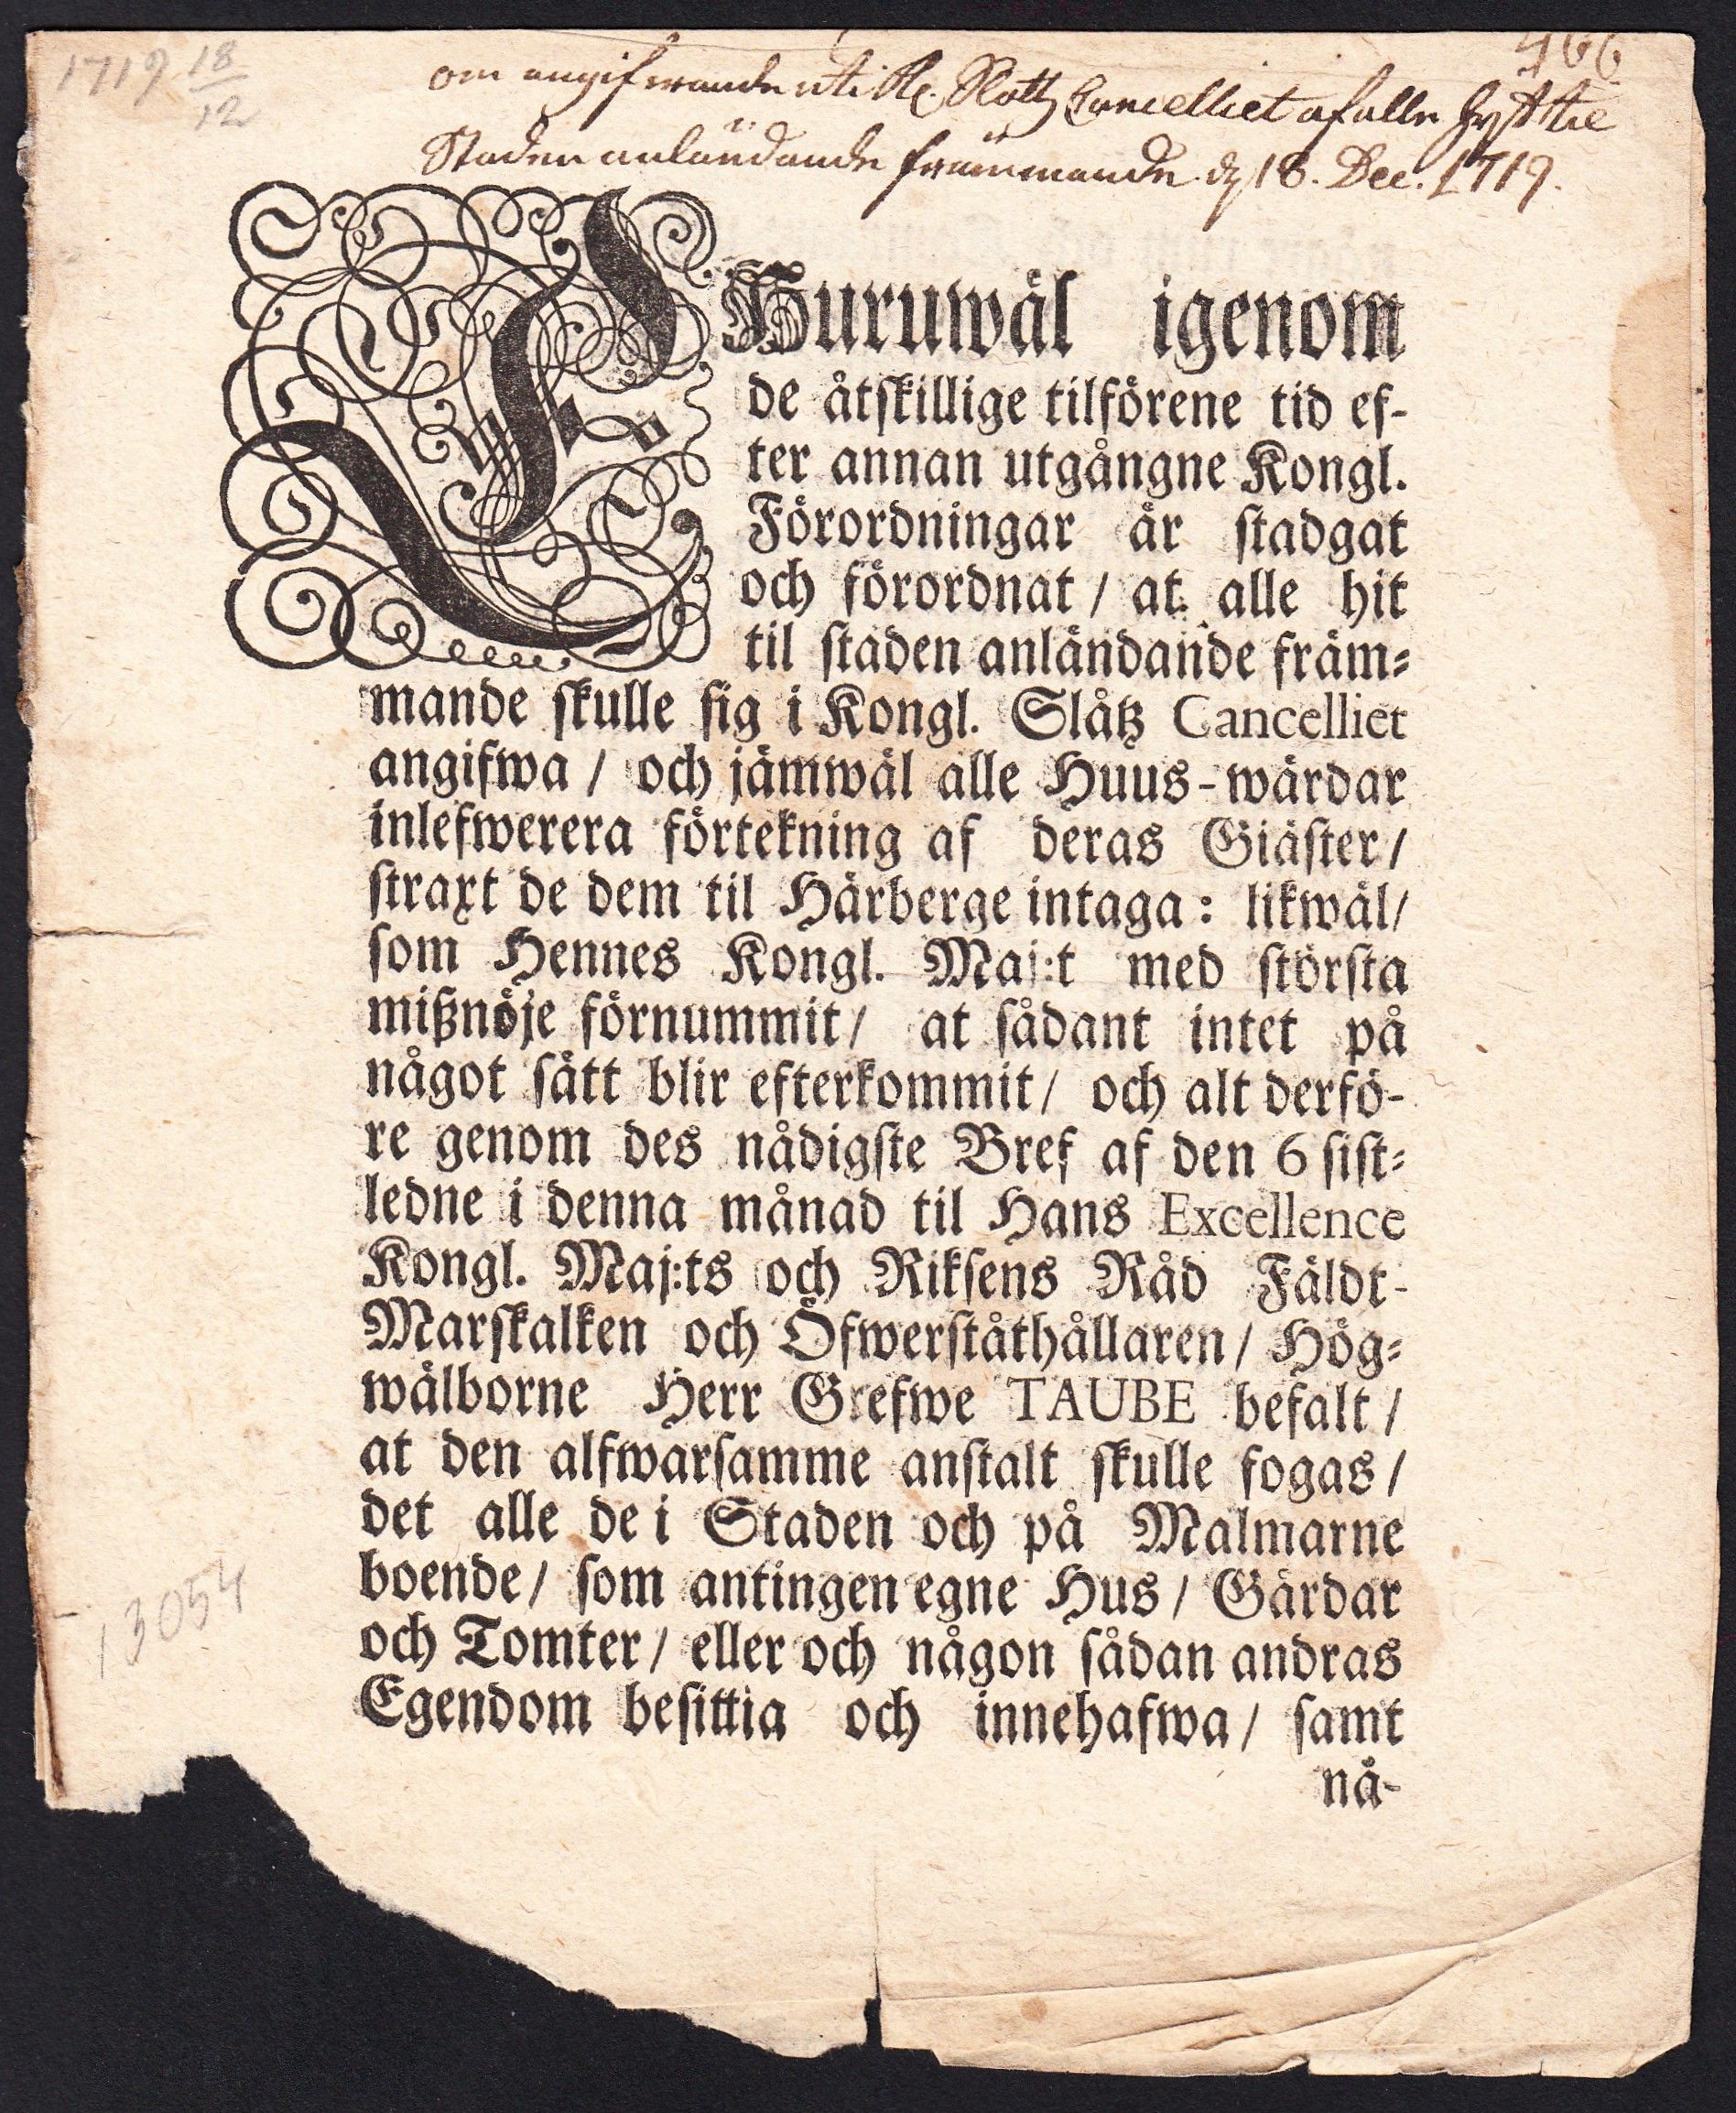 1719 18/12
466
om angifwande uti K. Slottz Cancelliet af alle hyt til
Staden anländande främmande. d. 18. Dec. 1719.
IHuruwäl igenom
de åtskillige tilförene tid ef-
ter annan utgångne Kongl.
Förordningar är stadgat
och förordnat / at alle hit
til staden anländande främ-
mande skulle sig i Kongl. Slåtz Cancelliet
angifwa / och jämwäl alle Huus-wärdar
inlefwerera förtekning af deras Giäster /
straxt de dem til Härberge intaga: likwäl /
som Hennes Kongl. Maj:t med största
mißnöje förnummit / at sådant intet på
något sätt blir efterkommit / och alt derfö-
re genom des nådigste Bref af den 6 sist-
ledne i denna månad til Hans Excellence
Kongl. Maj:ts och Riksens Råd Fäldt-
Marskalken och Öfwerståthållaren / Hög-
wälborne Herr Grefwe TAUBE befalt /
at den alfwarsamme anstalt skulle fogas /
det alle de i Staden och på Malmarne
boende / som antingen egne Hus / Gårdar
och Tomter / eller och någon sådan andras
Egendom besittia och innehafwa / samt
nå-
13054